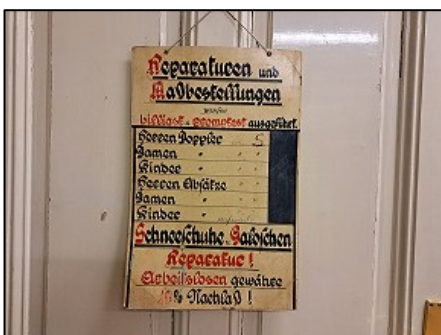 Reparaturen und
Maßbestellungen
werden
billigst u. promptest ausgeführt.
Herren Doppler S
Damen " " "
Kinder " " "
Herren Absätze " "
Damen " " "
Kinder "
Schneeschuhe u. Galoschen
Reparatur!
Arbeitslosen gewähre
10% Nachlaß!